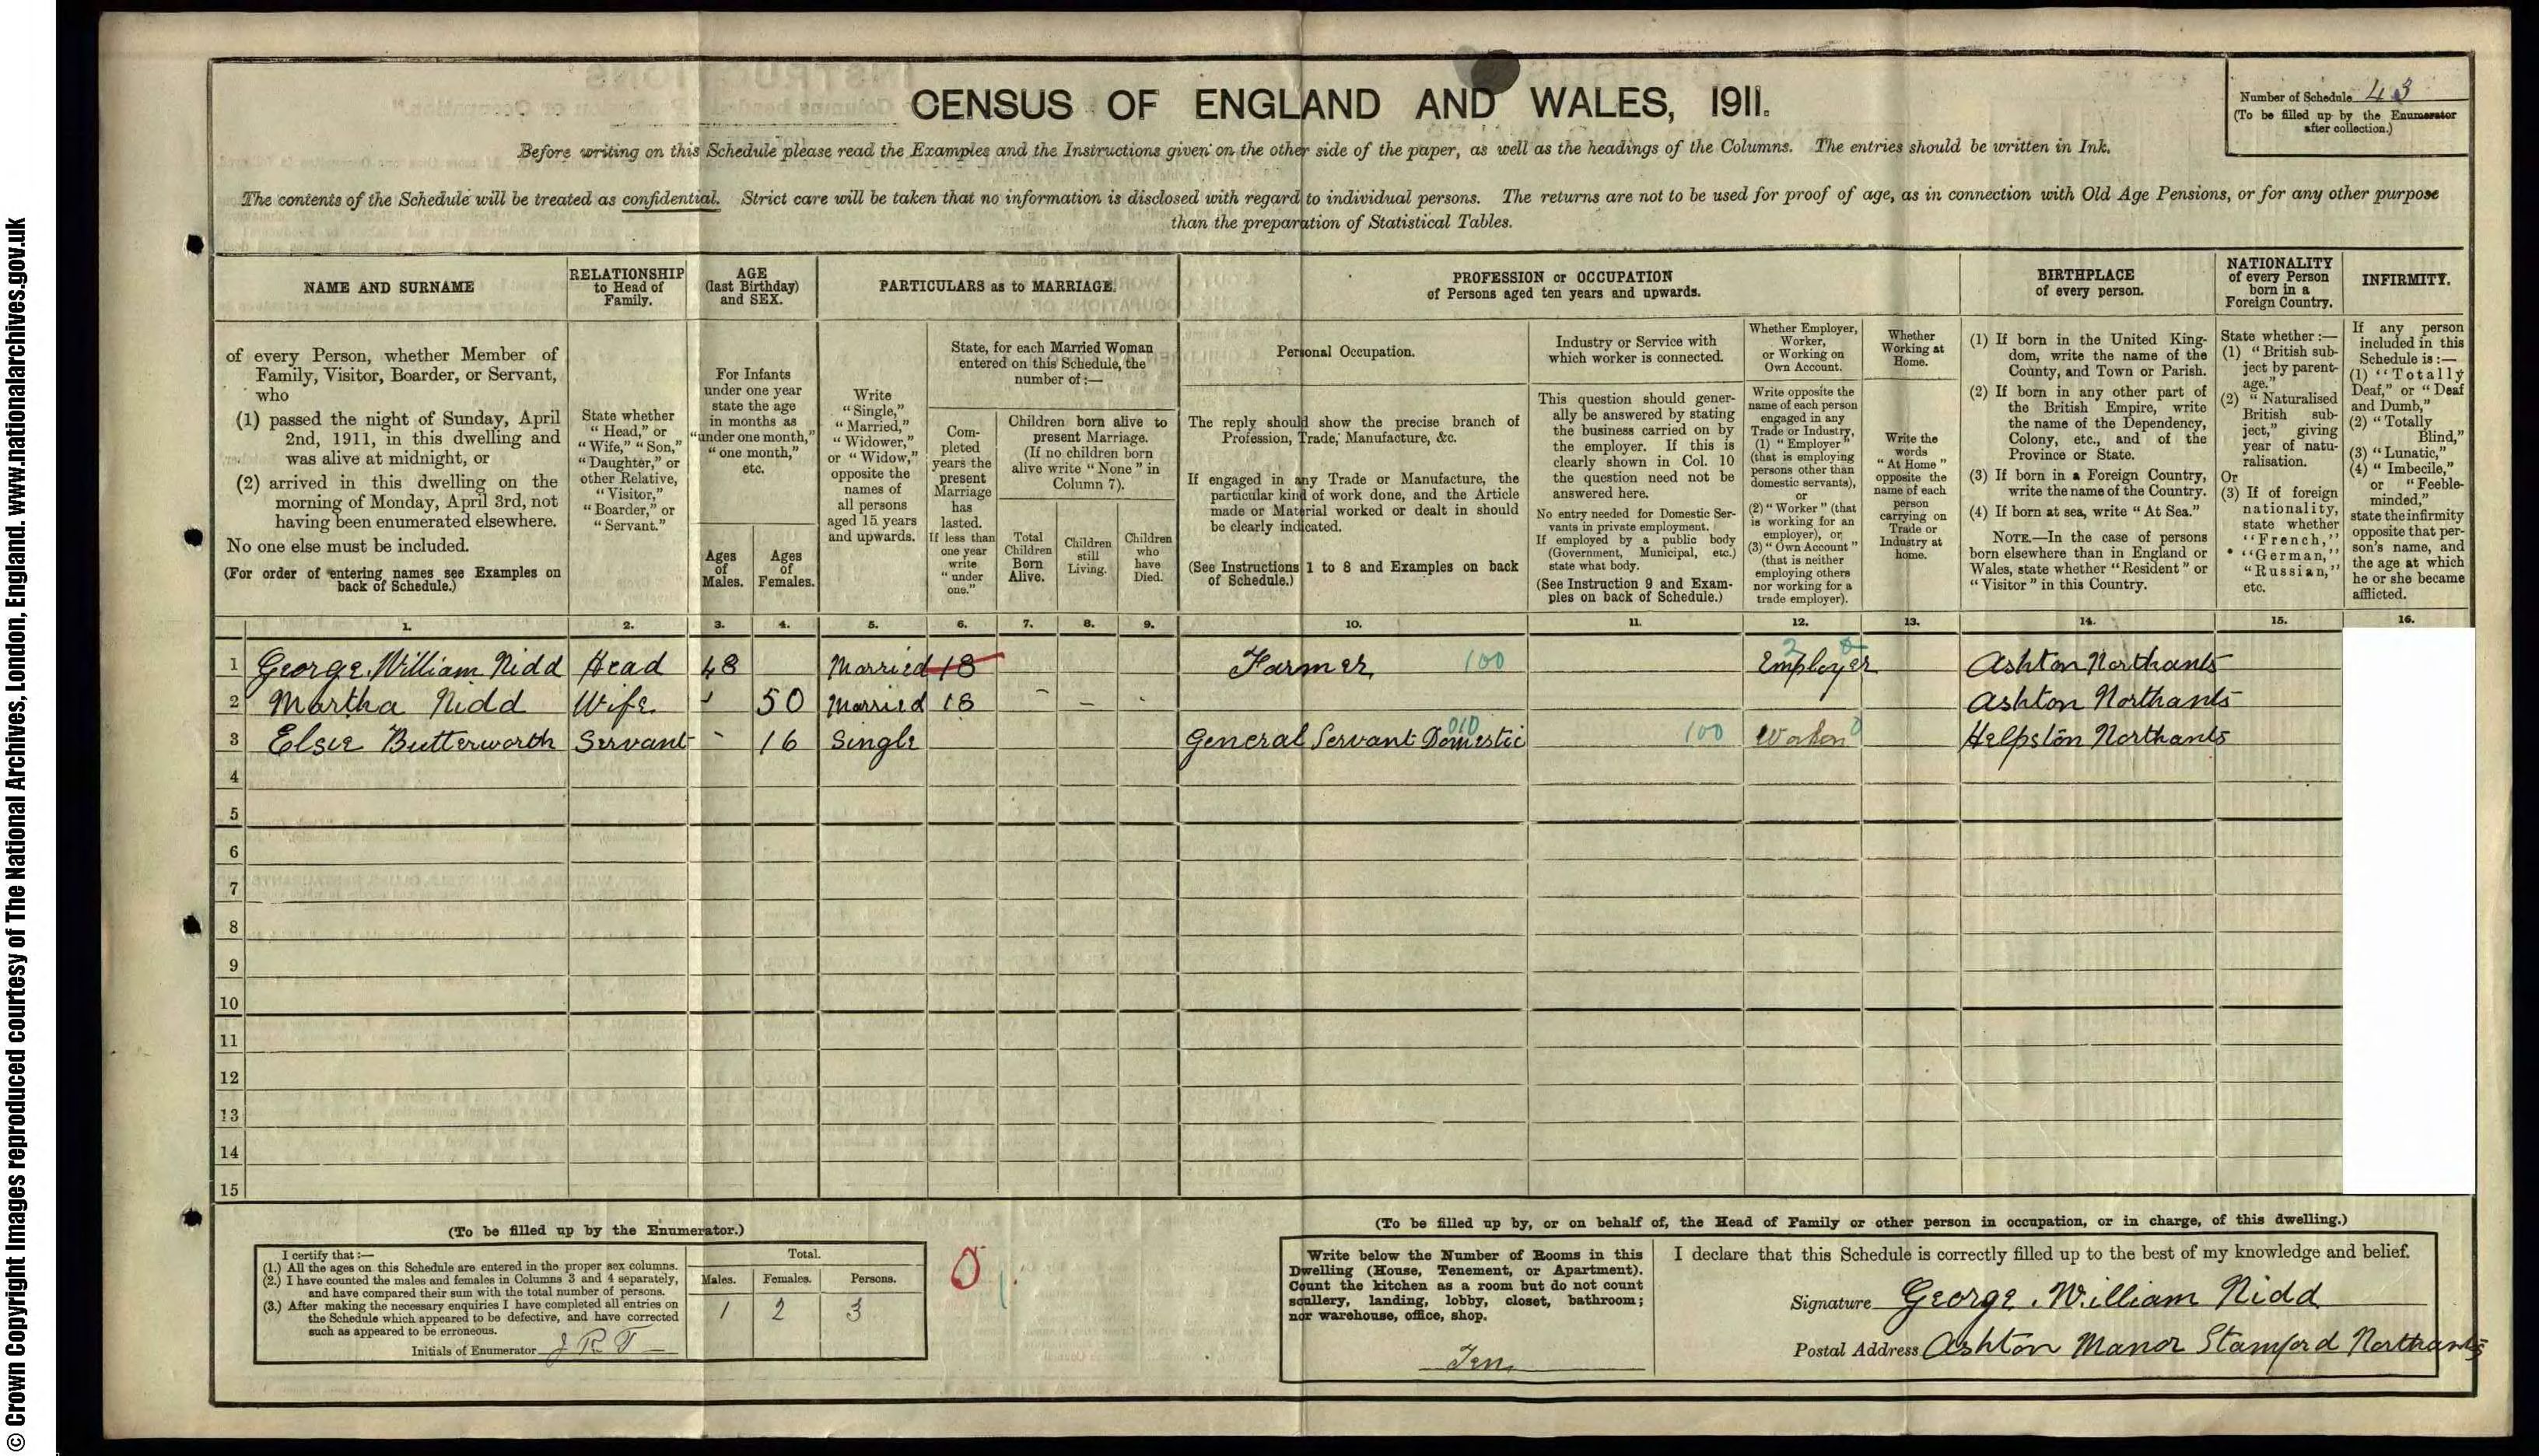 CENSUS OF ENGLAND AND WALES, 1911.
Number of Schedule 43
(To be filled up by the Enumerator
after collection.)
Before writing on this Schedule please read the Examples and the Instructions given on the other side of the paper, as well as the headings of the Columns. The entries should be written in Ink.
The contents of the Schedule will be treated as confidential. Strict care will be taken that no information is disclosed with regard to individual persons. The returns are not to be used for proof of age, as in connection with Old Age Pensions, or for any other purpose
than the preparation of Statistical Tables.
NAME AND SURNAME
of every Person, whether Member of
Family, Visitor, Boarder, or Servant,
who
(1) passed the night of Sunday, April
2nd, 1911, in this dwelling and
was alive at midnight, or
(2) arrived in this dwelling on the
morning of Monday, April 3rd, not
having been enumerated elsewhere.
No one else must be included.
(For order of entering names see Examples on
back of Schedule.)
RELATIONSHIP
to Head of
Family.
State whether
"Head," or
"Wife," "Son,"
"Daughter," or
other Relative,
"Visitor,"
"Boarder," or
"Servant."
AGE
(last Birthday)
and SEX.
For Infants
under one year
state the age
in months as
"under one month,"
"one month,"
etc.
Ages
of
Males.
Ages
of
Females.
PARTICULARS as to MARRIAGE.
Write
"Single,"
"Married,"
"Widower,"
or "Widow,"
opposite the
names of
all persons
aged 15 years
and upwards.
State, for each Married Woman
entered on this Schedule, the
number of:—
Com-
pleted
years the
present
Marriage
has
lasted.
If less than
one year
write
"under
one."
Children born alive to
present Marriage.
(If no children born
alive write "None" in
Column 7).
Total
Children
Born
Alive.
Children
still
Living.
Children
who
have
Died.
PROFESSION or OCCUPATION
of Persons aged ten years and upwards.
Personal Occupation.
The reply should show the precise branch of
Profession, Trade, Manufacture, &c.
If engaged in any Trade or Manufacture, the
particular kind of work done, and the Article
made or Material worked or dealt in should
be clearly indicated.
(See Instructions 1 to 8 and Examples on back
of Schedule.)
Industry or Service with
which worker is connected.
This question should gener-
ally be answered by stating
the business carried on by
the employer. If this is
clearly shown in Col. 10
the question need not be
answered here.
No entry needed for Domestic Ser-
vants in private employment.
If employed by a public body
(Government, Municipal, etc.)
state what body.
(See Instruction 9 and Exam-
ples on back of Schedule.)
Whether Employer,
Worker,
or Working on
Own Account.
Write opposite the
name of each person
engaged in any
Trade or Industry,
(1) "Employer"
(that is employing
persons other than
domestic servants),
or
(2) "Worker" (that
is working for an
employer), or
(3) "Own Account"
(that is neither
employing others
nor working for a
trade employer).
Whether
Working at
Home.
Write the
words
"At Home"
opposite the
name of each
person
carrying on
Trade or
Industry at
home.
BIRTHPLACE
of every person.
(1) If born in the United King-
dom, write the name of the
County, and Town or Parish.
(2) If born in any other part of
the British Empire, write
the name of the Dependency,
Colony, etc., and of the
Province or State.
(3) If born in a Foreign Country,
write the name of the Country.
(4) If born at sea, write "At Sea."
NOTE.—In the case of persons
born elsewhere than in England or
Wales, state whether "Resident" or
"Visitor" in this Country.
NATIONALITY
of every Person
born in a
Foreign Country.
State whether:—
(1) "British sub-
ject by parent-
age."
(2) "Naturalised
British sub-
ject," giving
year of natu-
ralisation.
Or
(3) If of foreign
nationality,
state whether
"French,"
"German,"
"Russian,"
etc.
INFIRMITY.
If any person
included in this
Schedule is:—
(1) "Totally
Deaf," or "Deaf
and Dumb,"
(2) "Totally
Blind,"
(3) "Lunatic,"
(4) "Imbecile,"
or "Feeble-
minded,"
state the infirmity
opposite that per-
son's name, and
the age at which
he or she became
afflicted.
1. 2. 3. 4. 5. 6. 7. 8. 9. 10. 11. 12. 13. 14. 15. 16.
1 George William Nidd Head 48 Married 18 Farmer 100 Employer Ashton Northants
2 Martha Nidd Wife 50 Married 18 — Ashton Northants
3 Elsie Butterworth Servant - 16 Single General Servant Domestic 010 100 Worker 0 Helpston Northants
4
5
6
7
8
9
10
11
12
13
14
15
(To be filled up by the Enumerator.)
I certify that:—
(1.) All the ages on this Schedule are entered in the proper sex columns.
(2.) I have counted the males and females in Columns 3 and 4 separately,
and have compared their sum with the total number of persons.
(3.) After making the necessary enquiries I have completed all entries on
the Schedule which appeared to be defective, and have corrected
such as appeared to be erroneous.
Initials of Enumerator J R T
Total.
Males. Females. Persons.
1 2 3
(To be filled up by, or on behalf of, the Head of Family or other person in occupation, or in charge, of this dwelling.)
Write below the Number of Rooms in this
Dwelling (House, Tenement, or Apartment).
Count the kitchen as a room but do not count
scullery, landing, lobby, closet, bathroom;
nor warehouse, office, shop.
Ten
I declare that this Schedule is correctly filled up to the best of my knowledge and belief.
Signature George William Nidd
Postal Address Ashton Manor Stamford Northants
© Crown Copyright Images reproduced courtesy of The National Archives, London, England. www.nationalarchives.gov.uk